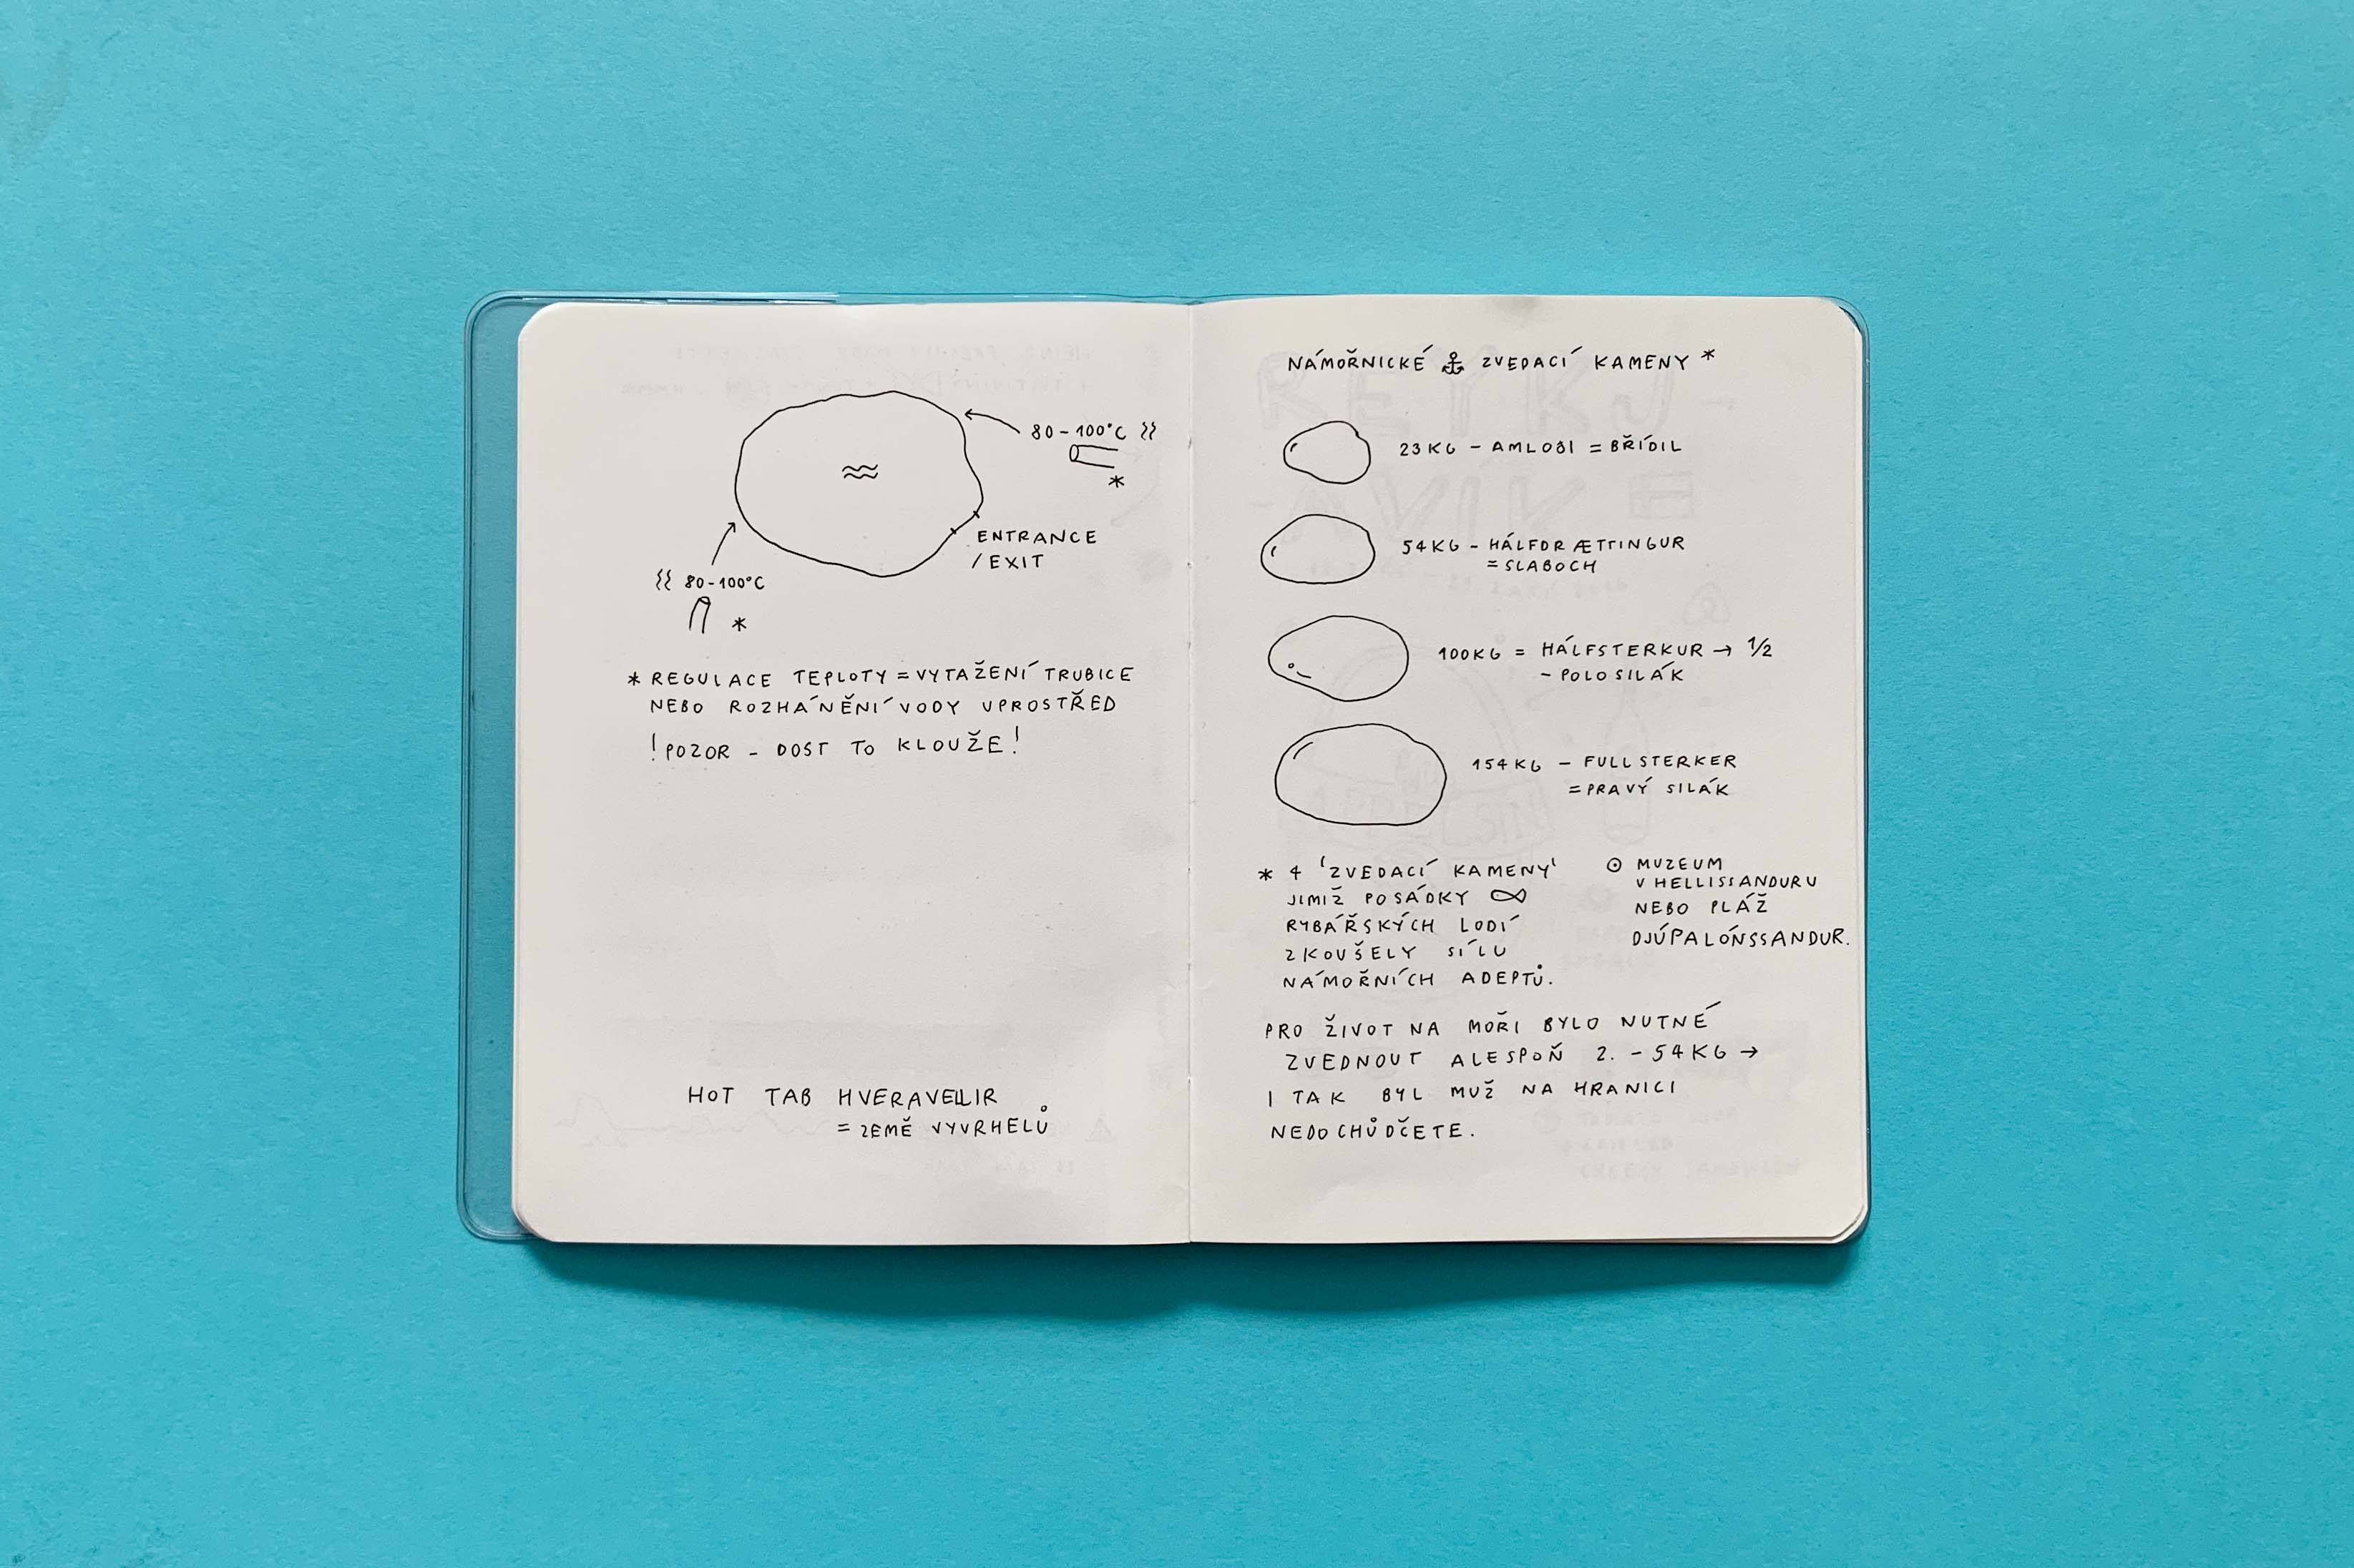 80-100°C
ENTRANCE
/EXIT
80-100°C
* REGULACE TEPLOTY = VYTAŽENÍ TRUBICE
NEBO ROZHÁNĚNÍ VODY UPROSTŘED
! POZOR - DOST TO KLOUŽE!
HOT TAB HVERAVELLIR
= ZEMĚ VYVRHELŮ
NÁMOŘNICKÉ ⚓ ZVEDACÍ KAMENY *
23KG - AMLOÐI = BŘÍDIL
54KG - HÁLFDRÆTTINGUR
= SLABOCH
100KG = HÁLFSTERKUR → 1/2
- POLOSILÁK
154KG - FULLSTERKER
= PRAVÝ SILÁK
* 4 'ZVEDACÍ KAMENY'
JIMIŽ POSÁDKY
RYBÁŘSKÝCH LODÍ
ZKOUŠELY SÍLU
NÁMOŘNÍCH ADEPTŮ.
MUZEUM
V HELLISSANDURU
NEBO PLÁŽ
DJÚPALÓNSSANDUR.
PRO ŽIVOT NA MOŘI BYLO NUTNÉ
ZVEDNOUT ALESPOŇ 2. - 54KG →
I TAK BYL MUŽ NA HRANICI
NEDOCHŮDČETE.